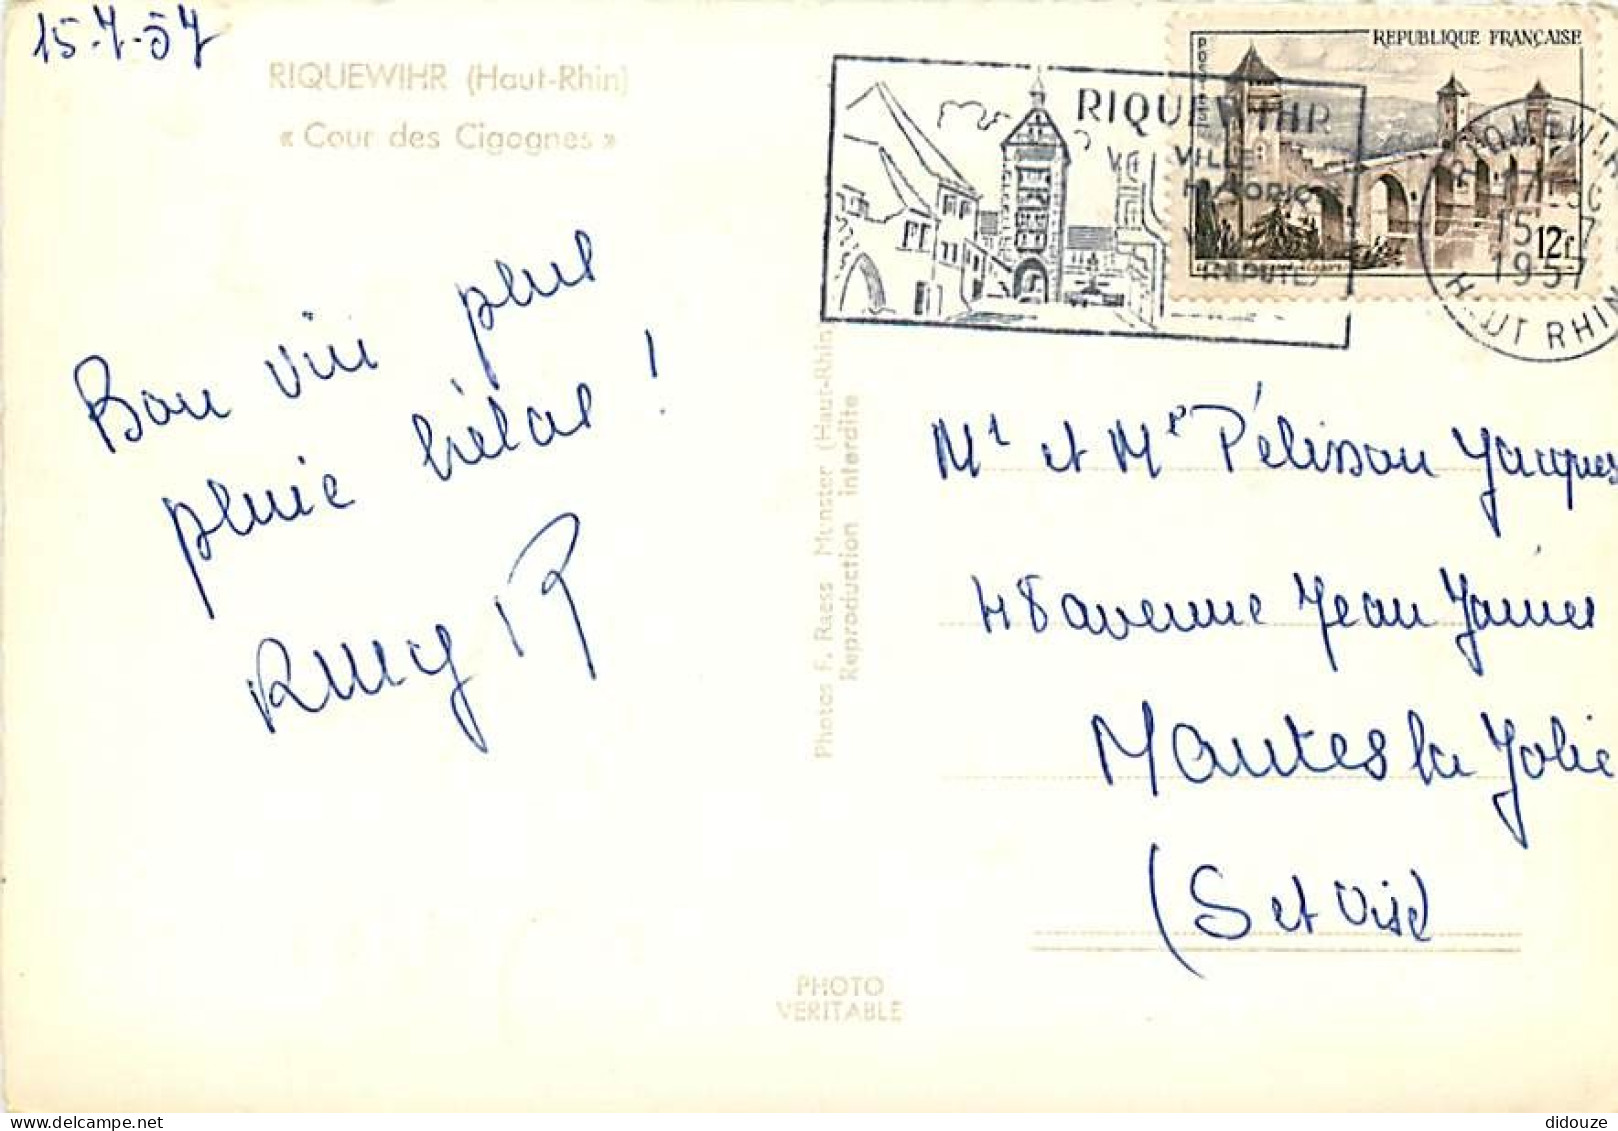 15-7-57
RIQUEWIHR (Haut-Rhin)
« Cour des Cigognes »
Bon vin plus
pluie hélas !
RIQUEWIHR
VILLE
HISTORIQUE
RÉPUTÉS
REPUBLIQUE FRANÇAISE
12f
RIQUEWIHR
15-7
1957
HAUT RHIN
Photos F. Raess Munster (Haut-Rhin)
Reproduction interdite
Mr et Me Pélisson Jacques
48 avenue Jean Jaurès
Mantes la Jolie
(S et Oise)
PHOTO
VERITABLE
didouze